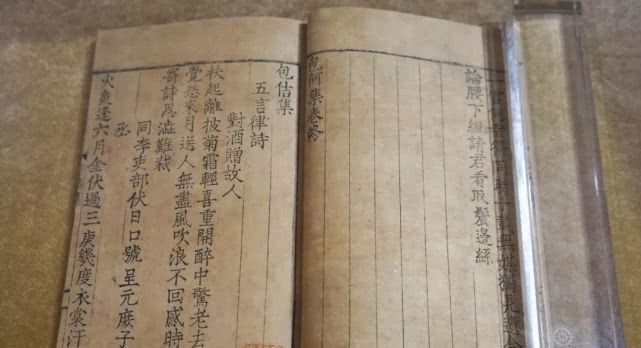 一官何幸得同時十載無媒獨見遺今
論腰下組請君看取鬢邊絲
包何集卷終
包佶集
五言律詩
對酒贈故人
扶起離披菊霜輕喜重開醉中驚老去
覺愁來月送人無盡風吹浪不回感時
寄詩思澁難裁
同李吏部伏日口號呈元庶子
丞
火炎逢六月金伏過三庚幾度衣裳汗